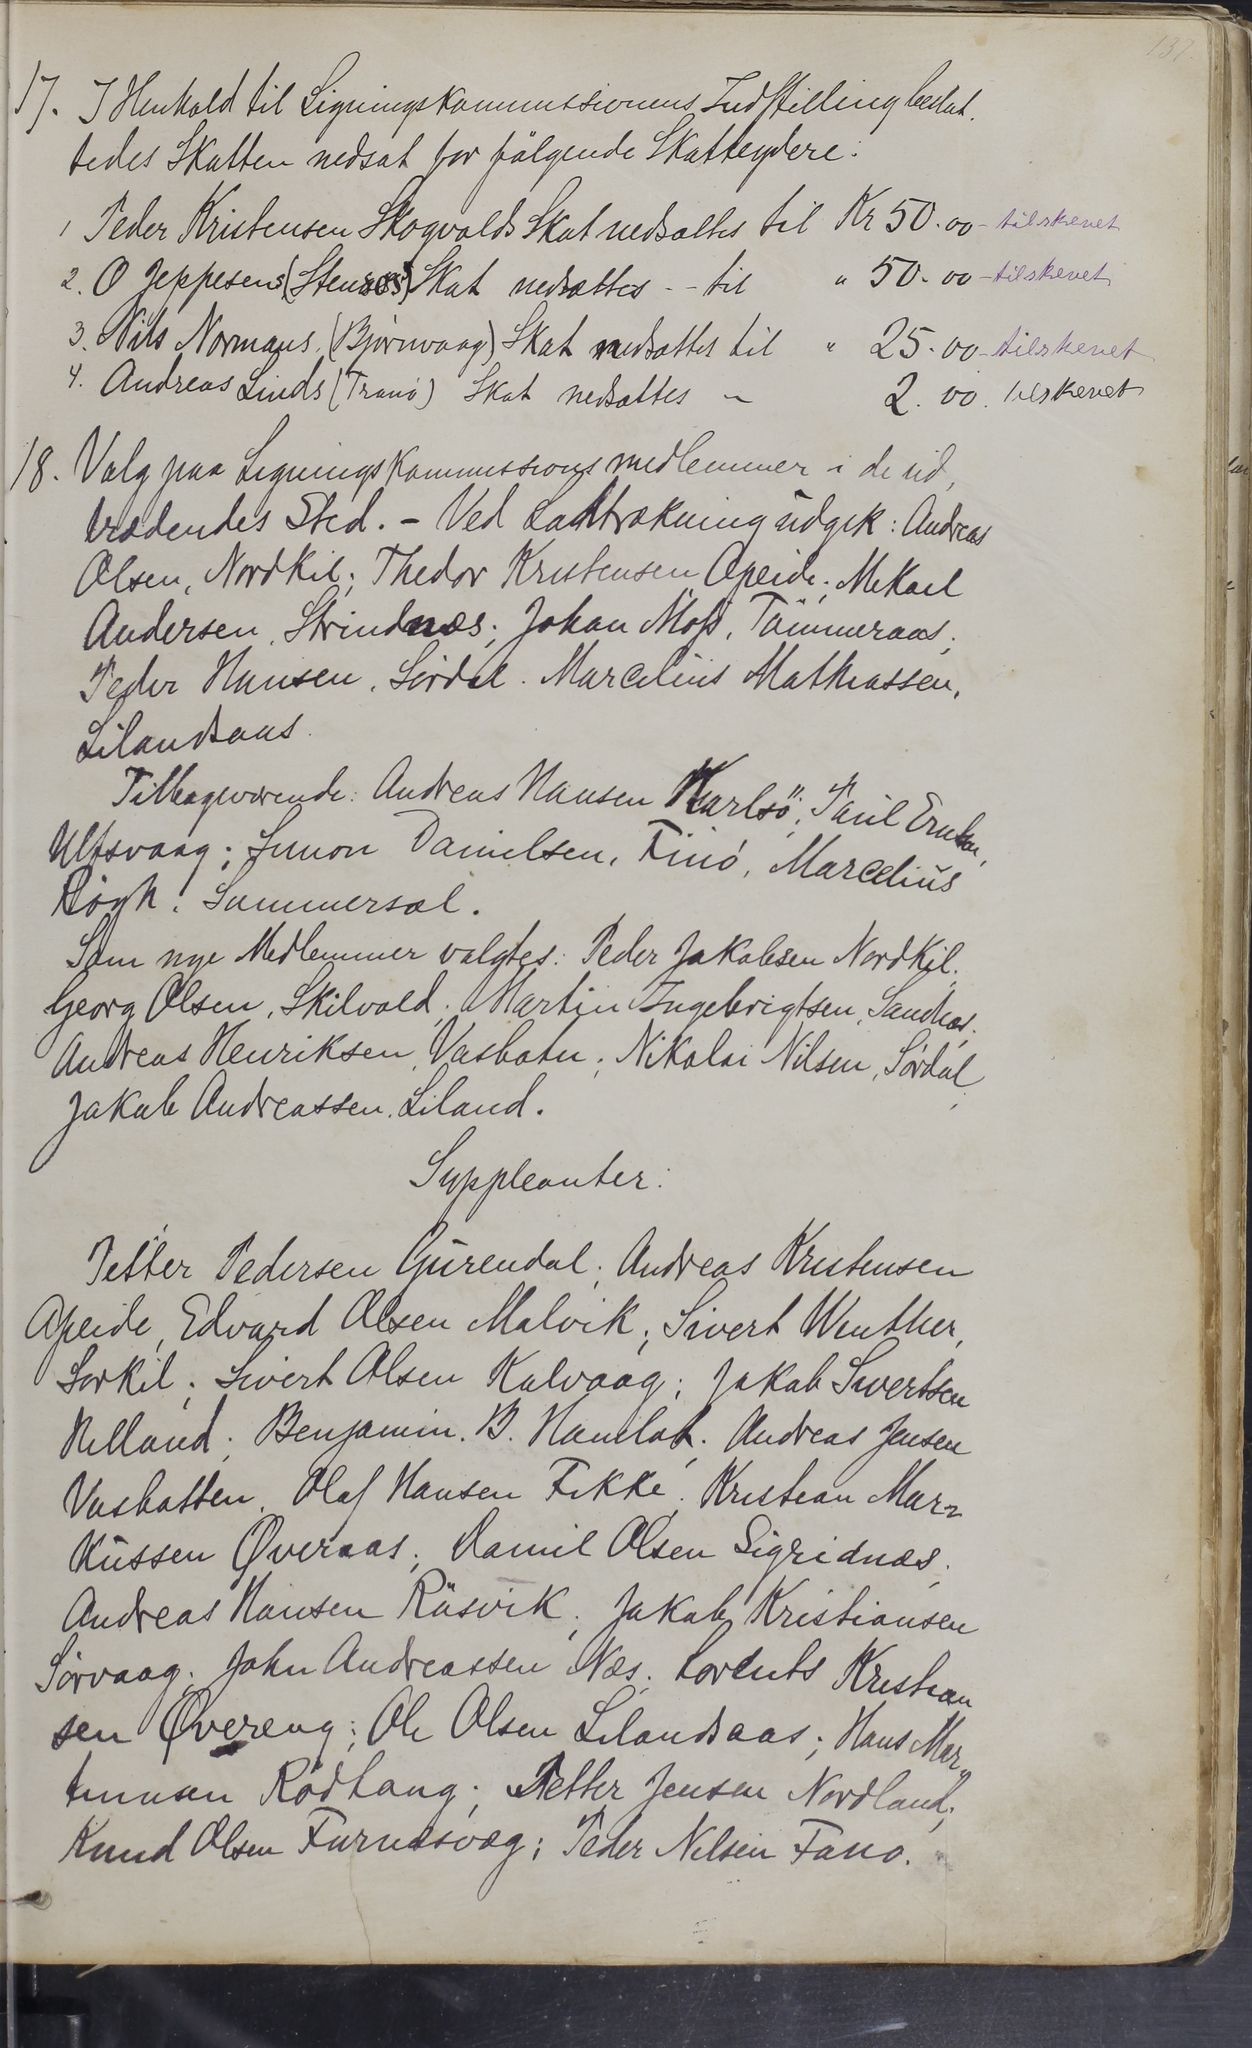 137.
17. I Henhold til Ligningskommissionens Indstilling beslut,
tedes Skatten nedsat for fölgende Skatteydere:
1 Peder Kristensen Skogvolds Skat nedsattes til Kr 50.00 - tilskrevet
2. O Jeppesens (Stensøs) Skat nedsattes - - til " 50.00 - tilskrevet
3. Nils Normans (Bjørnvaag) Skat nedsattes til " 25.00 - tilskrevet
4. Andreas Linds (Tranø) Skat nedsattes ~ 2.00. tilskrevet
18. Valg paa Ligningskommissionsmedlemmer i de ud,
trædendes Sted. - Ved Lodtrækning udgik: Andreas
Olsen, Nordkil; Thedor Kristensen Apeide; Mikael
Andersen, Strindnæs; Johan Moss, Tömmeraas;
Peder Hansen, Sørdal. Marcelius Mathiassen,
Lilandsaas.
Tilbageværende: Andreas Hansen Karlsö; Paul Eriksen,
Ulfsvaag; Simon Danielsen, Finø, Marcelius
Høgh, Sommersæl.
Som nye Medlemmer valgtes: Peder Jakobsen Nordkil;
Georg Olsen, Skilvold; Martin Ingebrigtsen, Sandnæs;
Andreas Henriksen, Vasbotn; Nikolai Nilsen, Sørdal;
Jakob Andreassen, Liland.
Suppleanter:
Petter Pedersen Gürendal; Andreas Kristensen
Apeide, Edvard Olsen Malvik; Sivert Winther,
Sørkil; Sivert Olsen Kalvaag; Jakob Sivertsen
Helland; Benjamin B. Hamlot; Andreas Jensen
Vasbatten, Olaf Hansen Fikke, Kristian Mar=
kussen Øveraas; Daniel Olsen Sigridnæs;
Andreas Hansen Räsvik; Jakob Kristiansen
Sørvaag; John Andreassen Næs; Lorents Kristian
sen Øvereng; Ole Olsen Lilandsaas; Hans Mar,
tinusen Rødtang; Petter Jensen Nordland;
Knud Olsen Furnæsvæg; Peder Nilsen Fano.